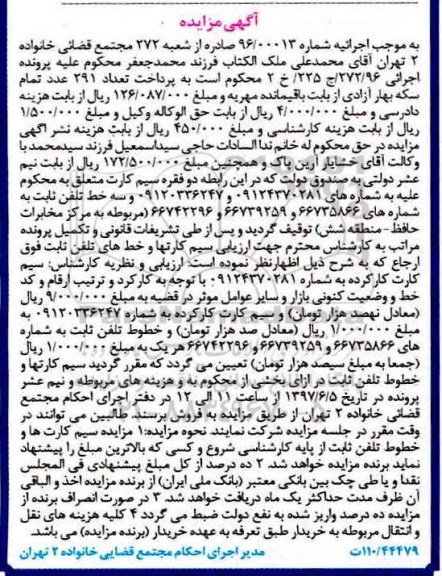 آگهی مزایده
به موجب اجرائیه شماره ۹۶/۰۰۰۱۳ صادره از شعبه ۲۷۲ مجتمع قضائی خانواده
۲ تهران آقای محمدعلی ملک الکتاب فرزند محمدجعفر محکوم علیه پرونده
اجرائی ۲۷۲/۹۶/ج ۲۲۵/ خ ۲ محکوم است به پرداخت تعداد ۲۹۱ عدد تمام
سکه بهار آزادی از بابت باقیمانده مهریه و مبلغ ۱۲۶/۰۸۷/۰۰۰ ریال از بابت هزینه
دادرسی و مبلغ ۴/۰۰۰/۰۰۰ ریال از بابت حق الوکاله وکیل و مبلغ ۱/۵۰۰/۰۰۰
ریال از بابت هزینه کارشناسی و مبلغ ۴۵۰/۰۰۰ ریال از بابت هزینه نشر آگهی
مزایده در حق محکوم له خانم نداالسادات حاجی سیداسمعیل فرزند سیدمحمد با
وکالت آقای خشایار آرین پاک و همچنین مبلغ ۱۷۲/۵۰۰/۰۰۰ ریال از بابت نیم
عشر دولتی به صندوق دولت که در این رابطه دو فقره سیم کارت متعلق به محکوم
علیه به شماره های ۰۹۱۲۴۳۷۰۲۸۱ و ۰۹۱۲۰۳۳۶۲۴۷ و سه خط تلفن ثابت به
شماره های ۶۶۷۳۵۸۶۶ و ۶۶۷۳۹۲۵۹ و ۶۶۷۴۲۲۹۶ (مربوطه به مرکز مخابرات
حافظ - منطقه شش) توقیف گردید و پس از طی تشریفات قانونی و تکمیل پرونده
مراتب به کارشناس محترم جهت ارزیابی سیم کارتها و خط های تلفن ثابت فوق
ارجاع که به شرح ذیل اظهارنظر نموده است ارزیابی و نظریه کارشناس: سیم
کارت کارکرده به شماره ۰۹۱۲۴۳۷۰۲۸۱ با توجه به کارکرد و ترتیب ارقام و کد
خط و وضعیت کنونی بازار و سایر عوامل موثر در قضیه به مبلغ ۹/۰۰۰/۰۰۰ ریال
(معادل نهصد هزار تومان) و سیم کارت کارکرده به شماره ۰۹۱۲۰۳۳۶۲۴۷ به
مبلغ ۱/۰۰۰/۰۰۰ ریال (معادل صد هزار تومان) و خطوط تلفن ثابت به شماره
های ۶۶۷۳۵۸۶۶ و ۶۶۷۳۹۲۵۹ و ۶۶۷۴۲۲۹۶ هر یک به مبلغ ۱/۰۰۰/۰۰۰ ریال
(جمعا به مبلغ سیصد هزار تومان) تعیین می گردد که مقرر گردید سیم کارتها و
خطوط تلفن ثابت در ازای بخشی از محکوم به و هزینه های مربوطه و نیم عشر
پرونده در تاریخ ۱۳۹۷/۶/۵ از ساعت ۱۱ الی ۱۲ در دفتر اجرای احکام مجتمع
قضائی خانواده ۲ تهران از طریق مزایده به فروش برسند. طالبین می توانند در
وقت مقرر در جلسه مزایده شرکت نمایند. نحوه مزایده: ۱ مزایده سیم کارت ها و
خطوط تلفن ثابت از پایه کارشناسی شروع و کسی که بالاترین مبلغ را پیشنهاد
نماید برنده مزایده خواهد شد. ۲ ده درصد از کل مبلغ پیشنهادی فی المجلس
نقدا و یا طی چک بین بانکی معتبر (بانک ملی ایران) از برنده مزایده اخذ و الباقی
آن ظرف مدت حداکثر یک ماه دریافت خواهد شد. ۳ در صورت انصراف برنده از
مزایده ده درصد واریز شده به نفع دولت ضبط می گردد ۴ کلیه هزینه های نقل
و انتقال مربوطه به خریدار طبق تعرفه به عهده خریدار (برنده مزایده) می باشد.
۱۱۰/۴۴۴۷۹ت مدیر اجرای احکام مجتمع قضایی خانواده ۲ تهران